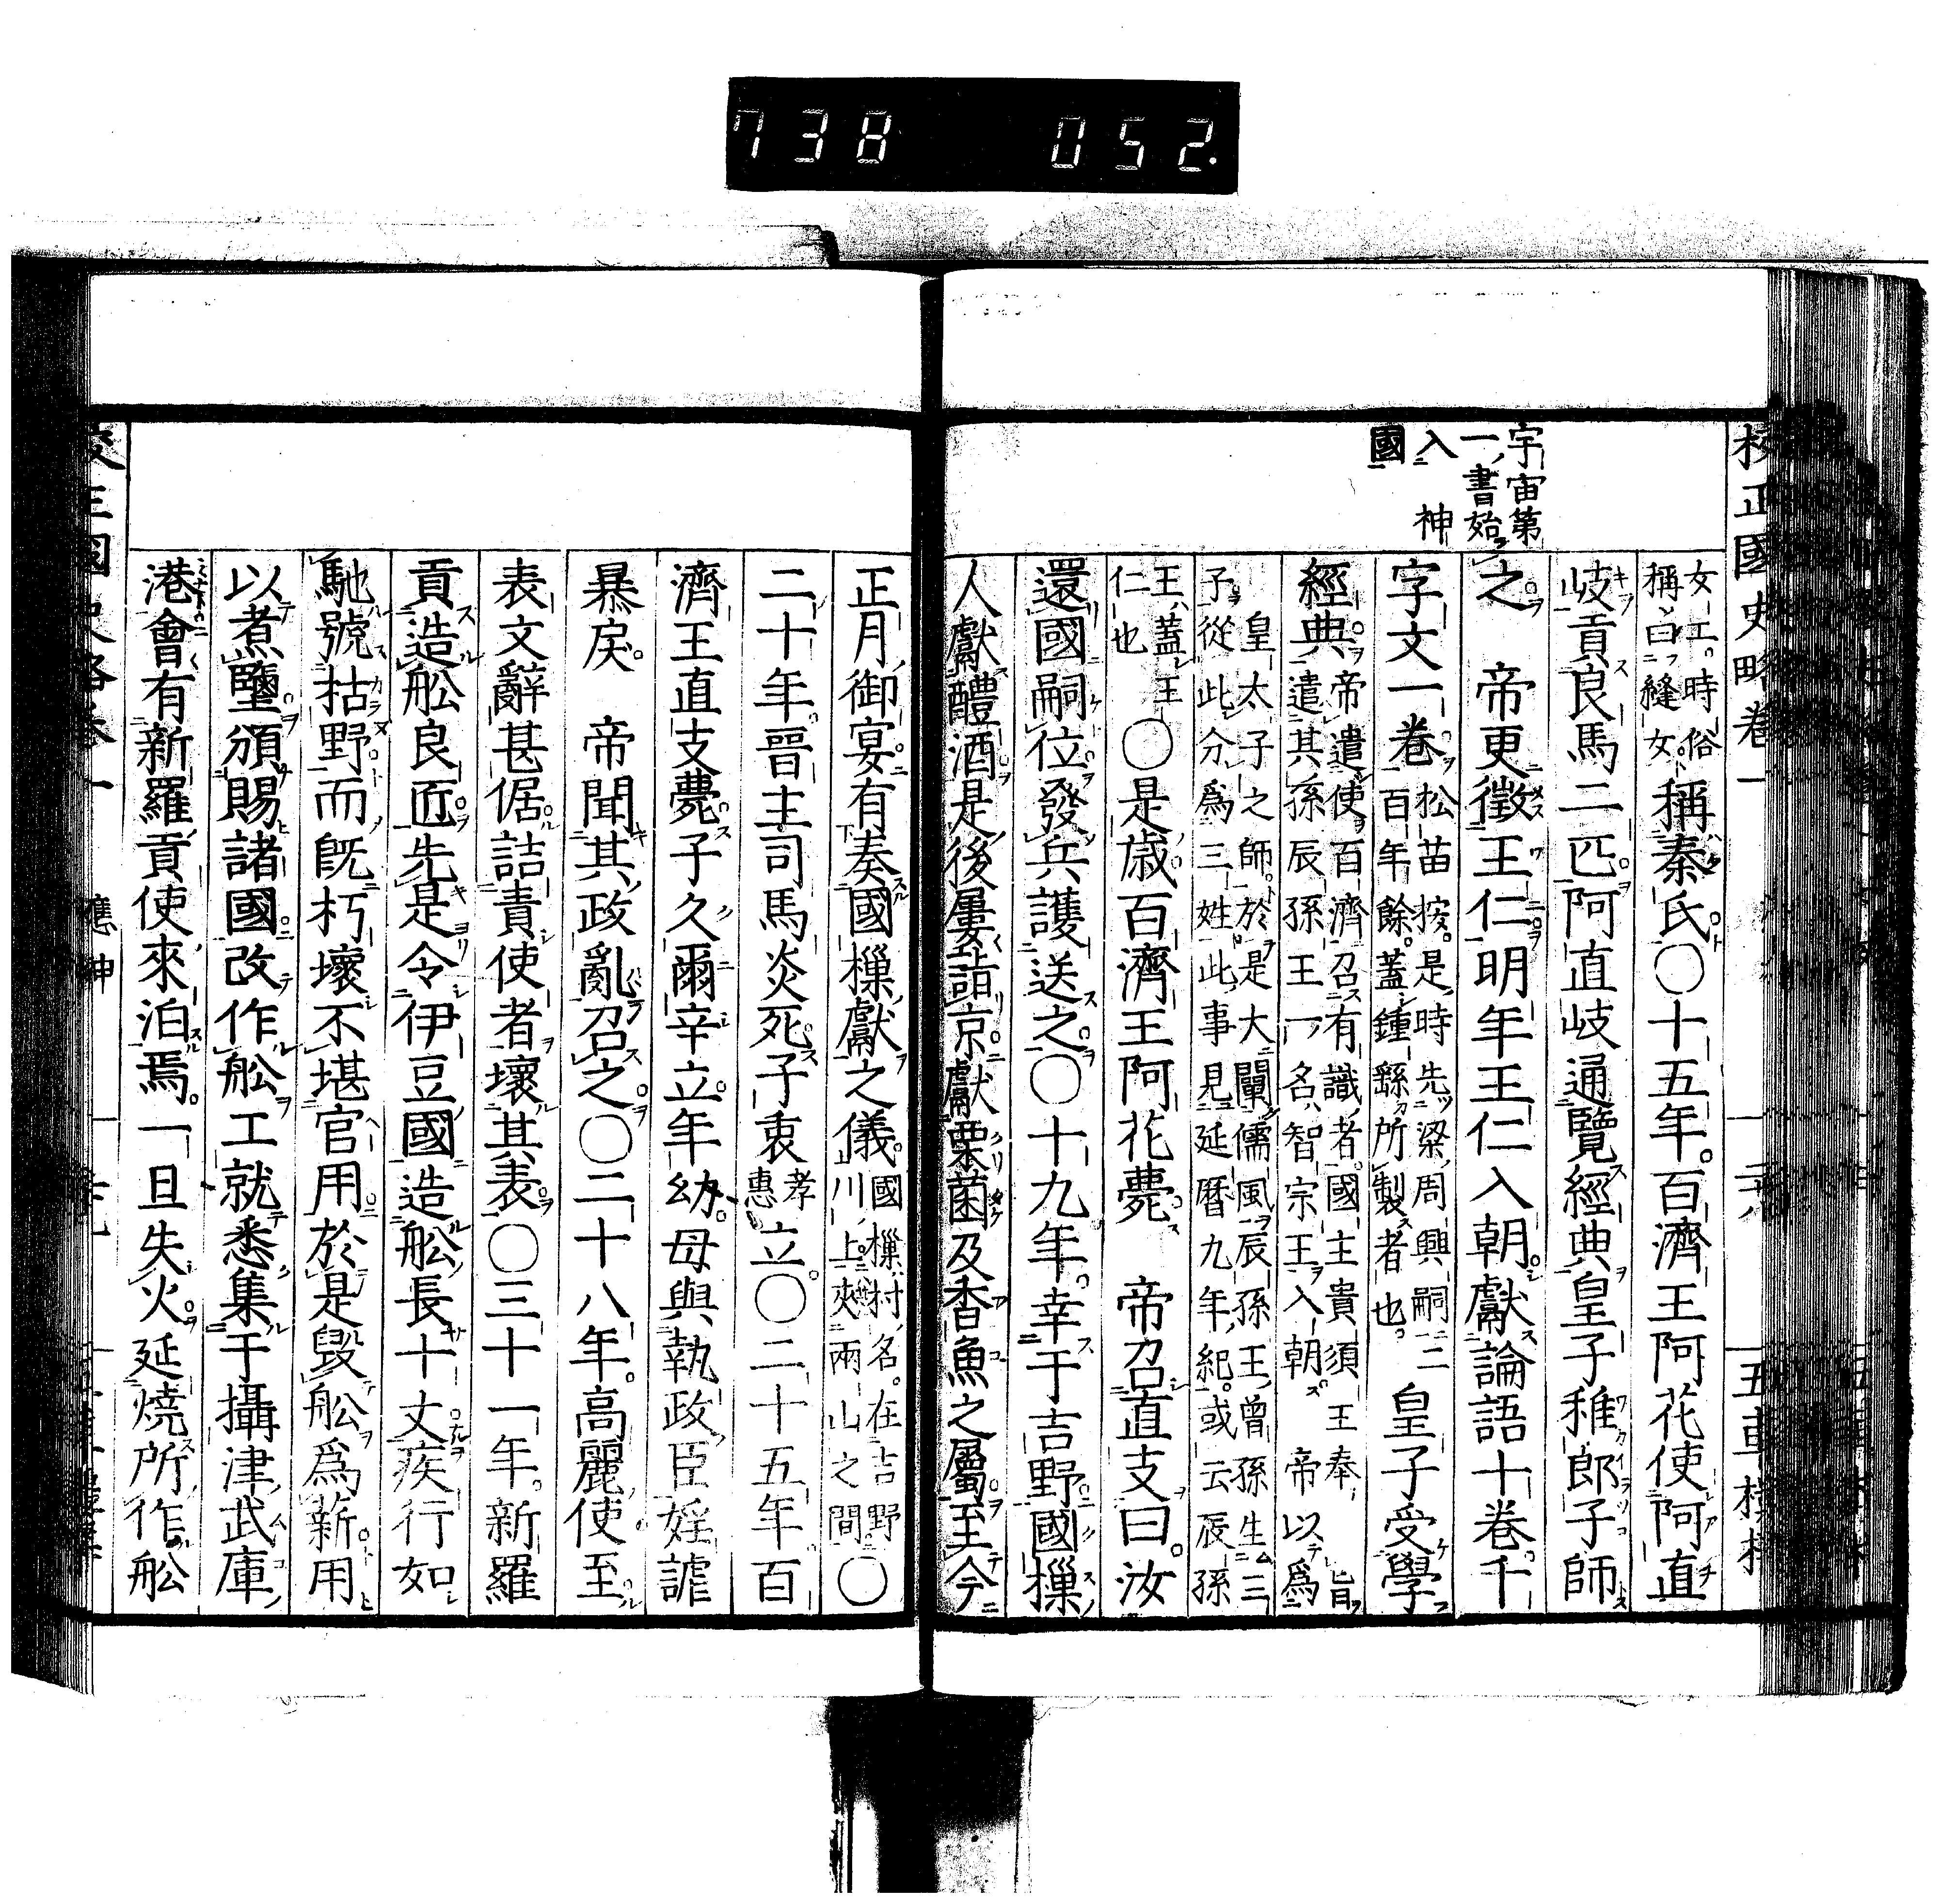 738 052.
校正國史略卷一
五車樓
宇宙第
一書始
入神
國
女工。時俗
稱曰縫女。
稱秦氏〇十五年。百濟王阿花使阿直
岐貢良馬二匹阿直岐通覽經典皇子稚郎子師
之 帝更徵王仁明年王仁入朝獻論語十卷千
字文一卷
松苗按。是時先梁周興嗣二
百年餘。蓋鍾繇所製者也。
皇子受學
經典
帝遣使百濟召有識者。國主貴須王奉旨
遣其孫辰孫王一名智宗王入朝 帝以爲
皇太子之師。於是大闡儒風辰孫王曾孫生三
子從此分爲三姓。此事見延曆九年紀。或云辰孫
王蓋王
仁也
〇是歲百濟王阿花薨 帝召直支曰。汝
還國嗣位發兵護送之〇十九年。幸于吉野國樔
人獻醴酒是後屢詣京獻栗菌及香魚之屬至今
正月御宴有奏國樔獻之儀
國樔村名。在吉野
川上夾兩山之間
〇
二十年。晉主司馬炎死子衷
孝
惠
立〇二十五年百
濟王直支薨子久爾辛立。年幼。母與執政臣婬謔
暴戾。 帝聞其政亂召之〇二十八年。高麗使至
表文辭甚倨詰責使者壞其表〇三十一年。新羅
貢造舩良匠先是令伊豆國造舩長十丈疾行如
馳號枯野而旣朽壞不堪官用於是毀舩爲薪用
以煮鹽頒賜諸國改作舩工就悉集于攝津武庫
港會有新羅貢使來泊焉。一旦失火延燒所作舩
國史略卷一
應神